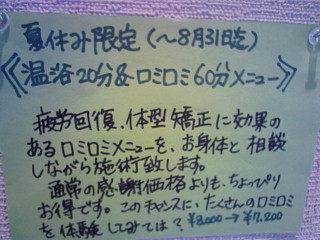 夏休み限定(〜8月31日迄)
《温浴20分&ロミロミ60分メニュー》
疲労回復、体型矯正に効果の
あるロミロミメニューを、お身体と相談
しながら施術致します。
通常の感謝価格よりも、ちょっぴり
お得です。このチャンスに、たくさんのロミロミ
を体験してみては? ¥8,000→¥7,200